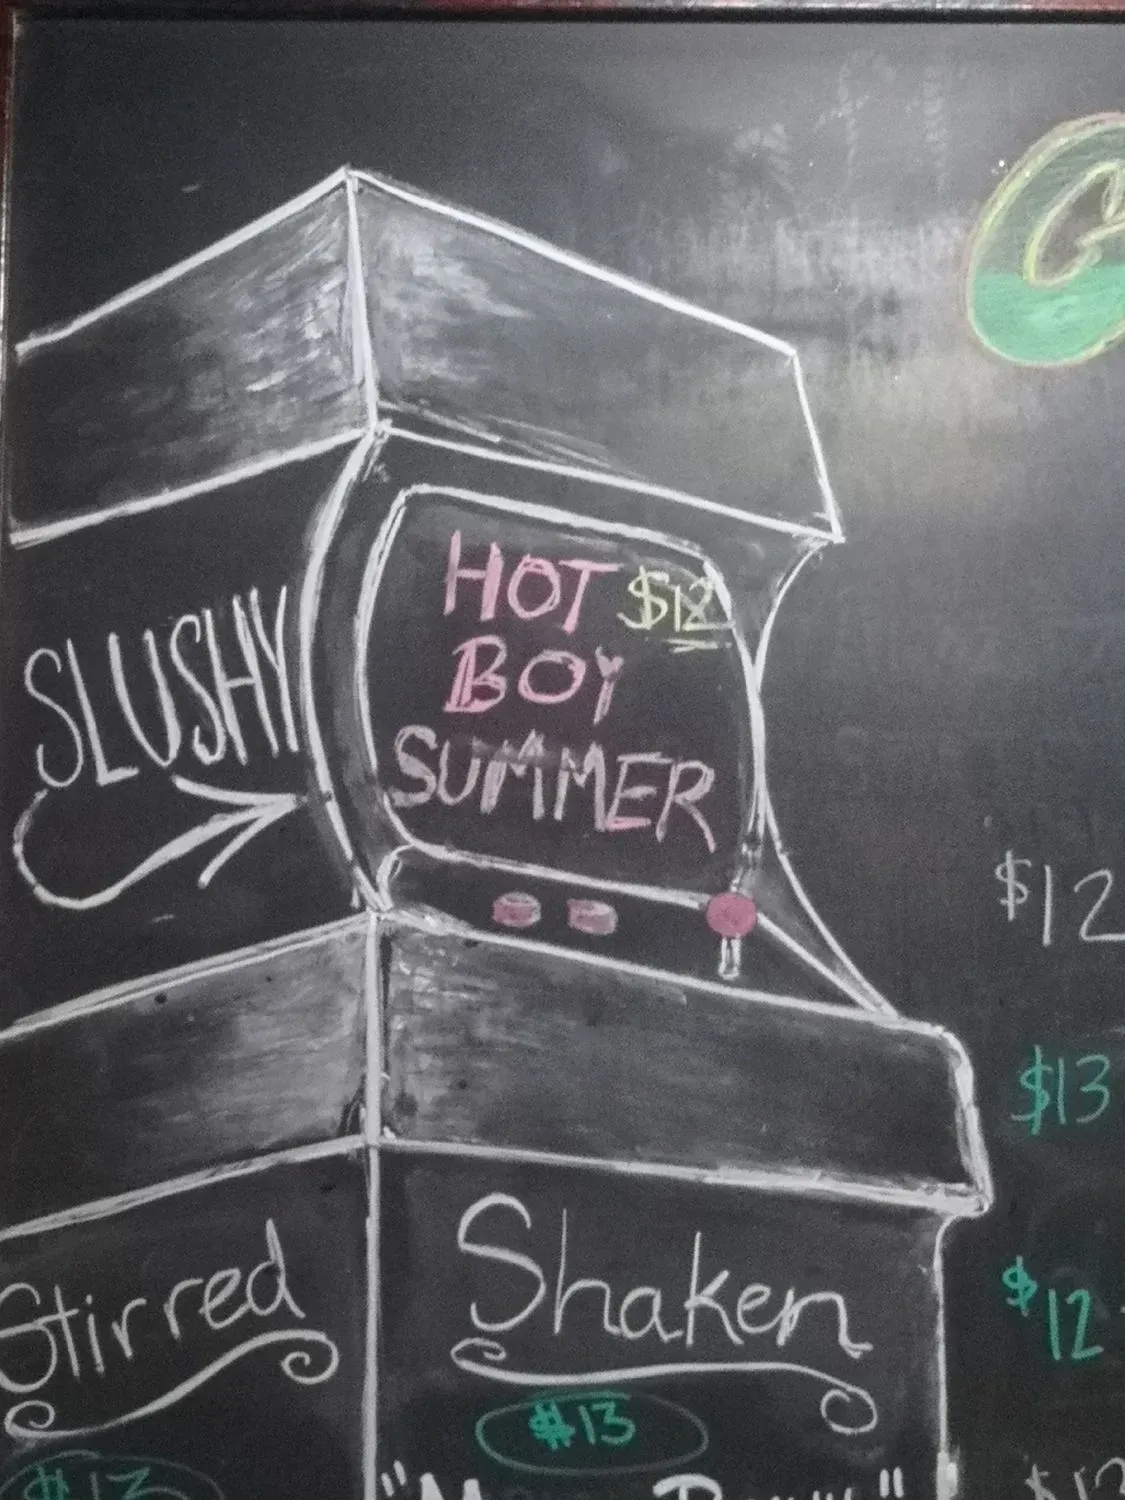 HOT $12
BOY
SUMMER
SLUSHY
$12
$13
$12
Stirred
Shaken
$13
$13